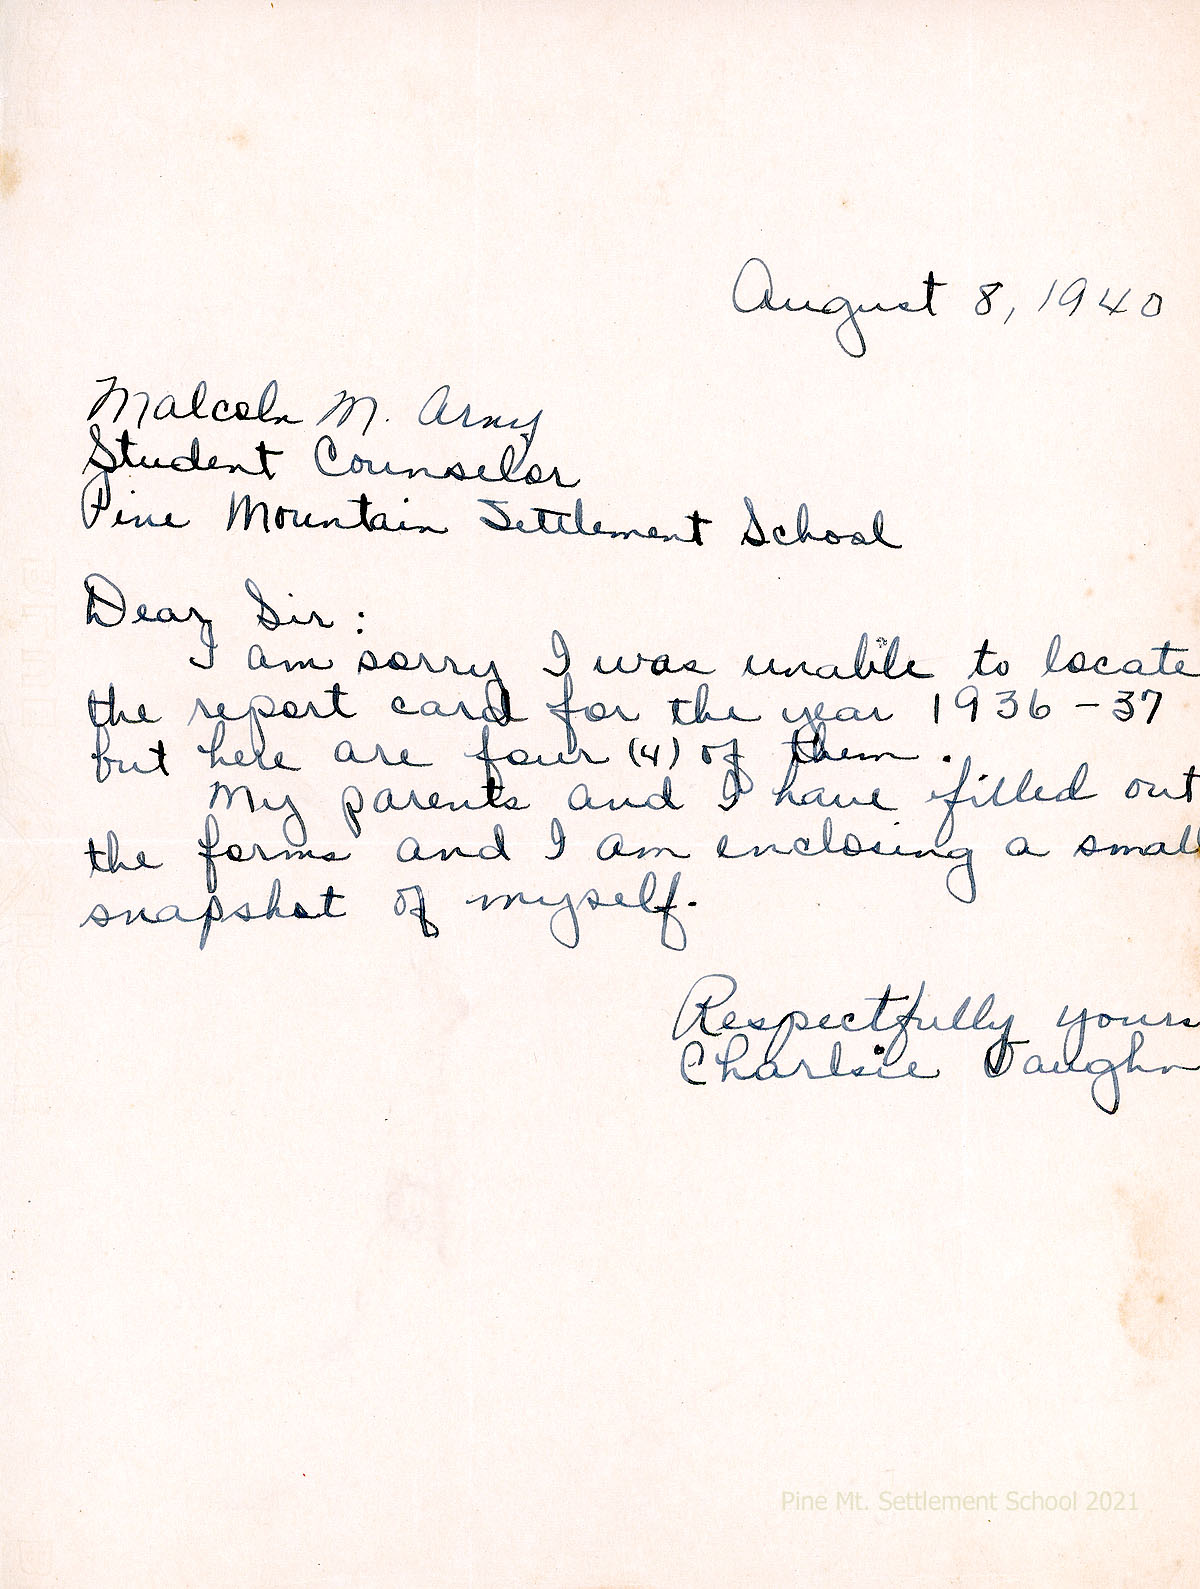 August 8, 1940
Malcolm M. Arny
Student Counselor
Pine Mountain Settlement School
Dear Sir:
I am sorry I was unable to locate
the report card for the year 1936-37
but here are four (4) of them.
My parents and I have filled out
the forms and I am enclosing a small
snapshot of myself.
Respectfully yours
Charlsie Vaughn
Pine Mt. Settlement School 2021